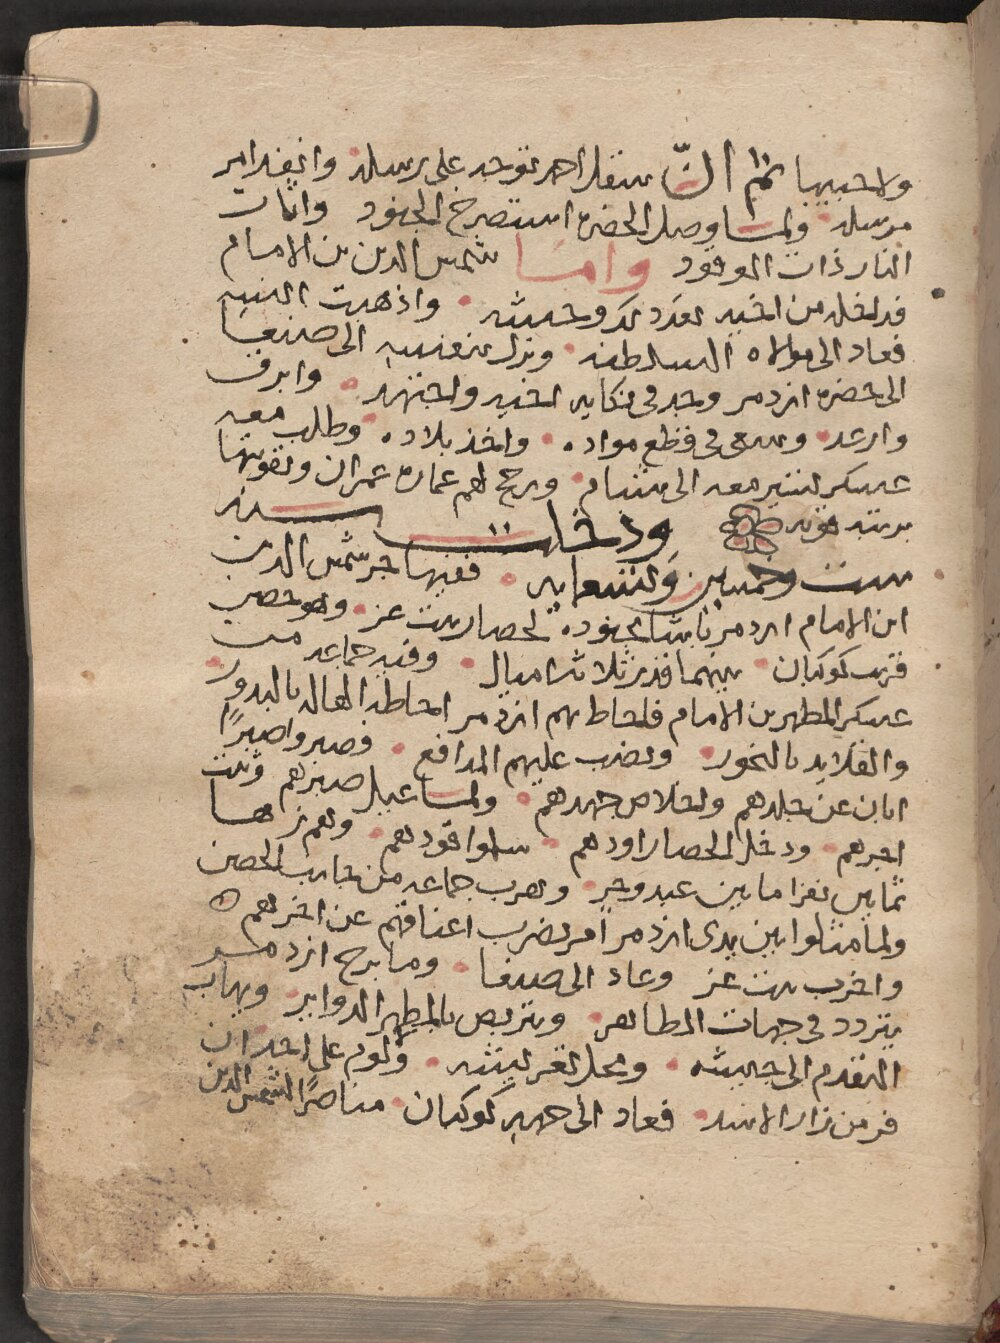 ولاحبيبها ثم ان سنقل احمد توجه على رسله وانفد امر
مرسله ولما وصل الحضره استصرخ الجنود واثارت
النار ذات الوقود واما شمس الدين بن الامام
فداخله من اخيه وحيشه واذهبت البنيه
فعاد الى موالاه السلطنه ونزل بنفسه الى صنعا
الى حضره ازدمر وجد في نكايه اخيه واجتهد وابرق
وارعد وسعى في قطع مواده واخذ بلاده وطلب معه
عسكر لتسير معه الى شبام ورجح لهم عماره عمران وتقويتها
برتبه قويه ودخلت سنه
ست وخمسين وتسعمايه ففيها جر شمس الدين
ابن الامام ازدمر باشا بجنوده لحصار بيت عز وهو حصن
قريب كوكبان بينهما قدر ثلاثه اميال وفيه جماعه من
عسكر المطهر بن الامام فاحاط بهم ازدمر احاطه الهاله بالبدور
والقلايد بالنحور ونصب عليهم المدافع فصبروا صبرا
ابان عن جلدهم واخلاص جهدهم ولما عيل صبرهم وثبت
اجرهم ودخل الحصار اودهم سلموا قودهم وهم زها
ثمانين نفرا ما بين عبد وحر وهرب جماعه من جانب الحصن
ولما مثلوا بين يدي ازدمر امر بضرب اعناقهم عن اخرهم
واخرب بيت عز وعاد الى صنعا وما برح ازدمر
يتردد في جهات المطاهر ويتربص بالمطهر الدواير ويهاب
التقدم الى جيشه ومحل تعريشه ولوم على احد ان
فر من زار الاسد فعاد الى جهه كوكبان مناصرا لشمس الدين